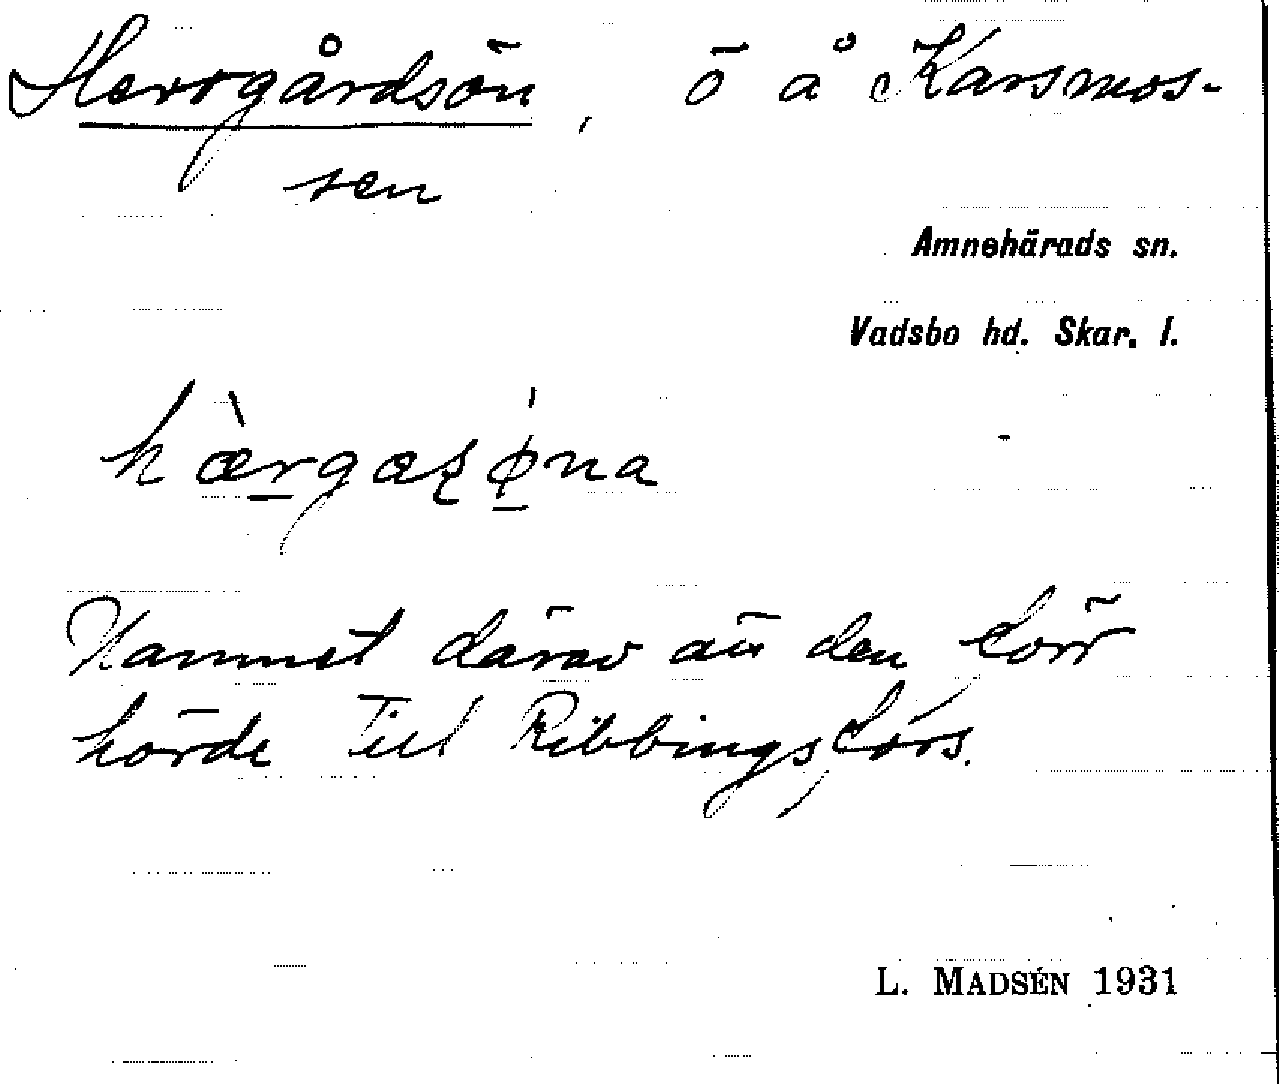 Herrgårdsön, ö å Karsmos-
sen
Amnehärads sn.
Vadsbo hd. Skar. l.
hæ̀rgaʂø̀na
Namnet därav att den förr
hörde till Ribbingsfors.
L. MADSÉN 1931